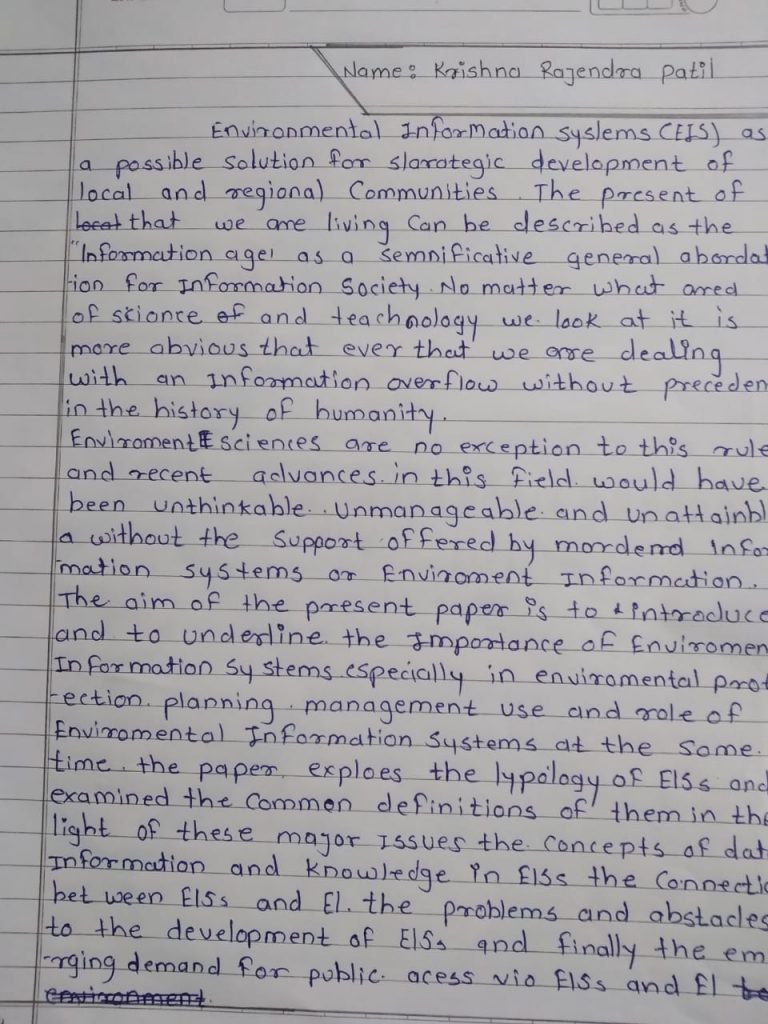 Name: Krishna Rajendra Patil
Environmental Information syslems (EIS) as
a possible solution for slarategic development of
local and regional Communities. The present of
that we are living Can be described as the
"Information age' as a semnificative general abordat
-ion for Information Society. No matter what ared
of scionce of and teachnology we look at it is
more abvious that ever that we are dealing
with an Information overflow without preceden
in the history of humanity.
Enviroment sciences are no exception to this rule
and recent advances. in this field. would have
been unthinkable. unmanageable. and unattainbl
a without the Support offered by morderrd Infor
-mation systems or Enviroment Information.
The aim of the present paper is to introduce
and to underline. the Importance of Enviromen
Information Sy stems. especially in enviromental prot
-ection. planning. management use and role of
Enviromental Information Systems at the Same.
time. the paper. exploes the lypology of EISs and
examined the Common definitions of them in the
light of these major Issues the Concepts of dat
Information and Knowledge in EISs the Connectio
bet ween EISs and EI. the problems and abstacles
to the development of EISs and finally the em
-rging demand for public. acess via EISs and EI to
environment.